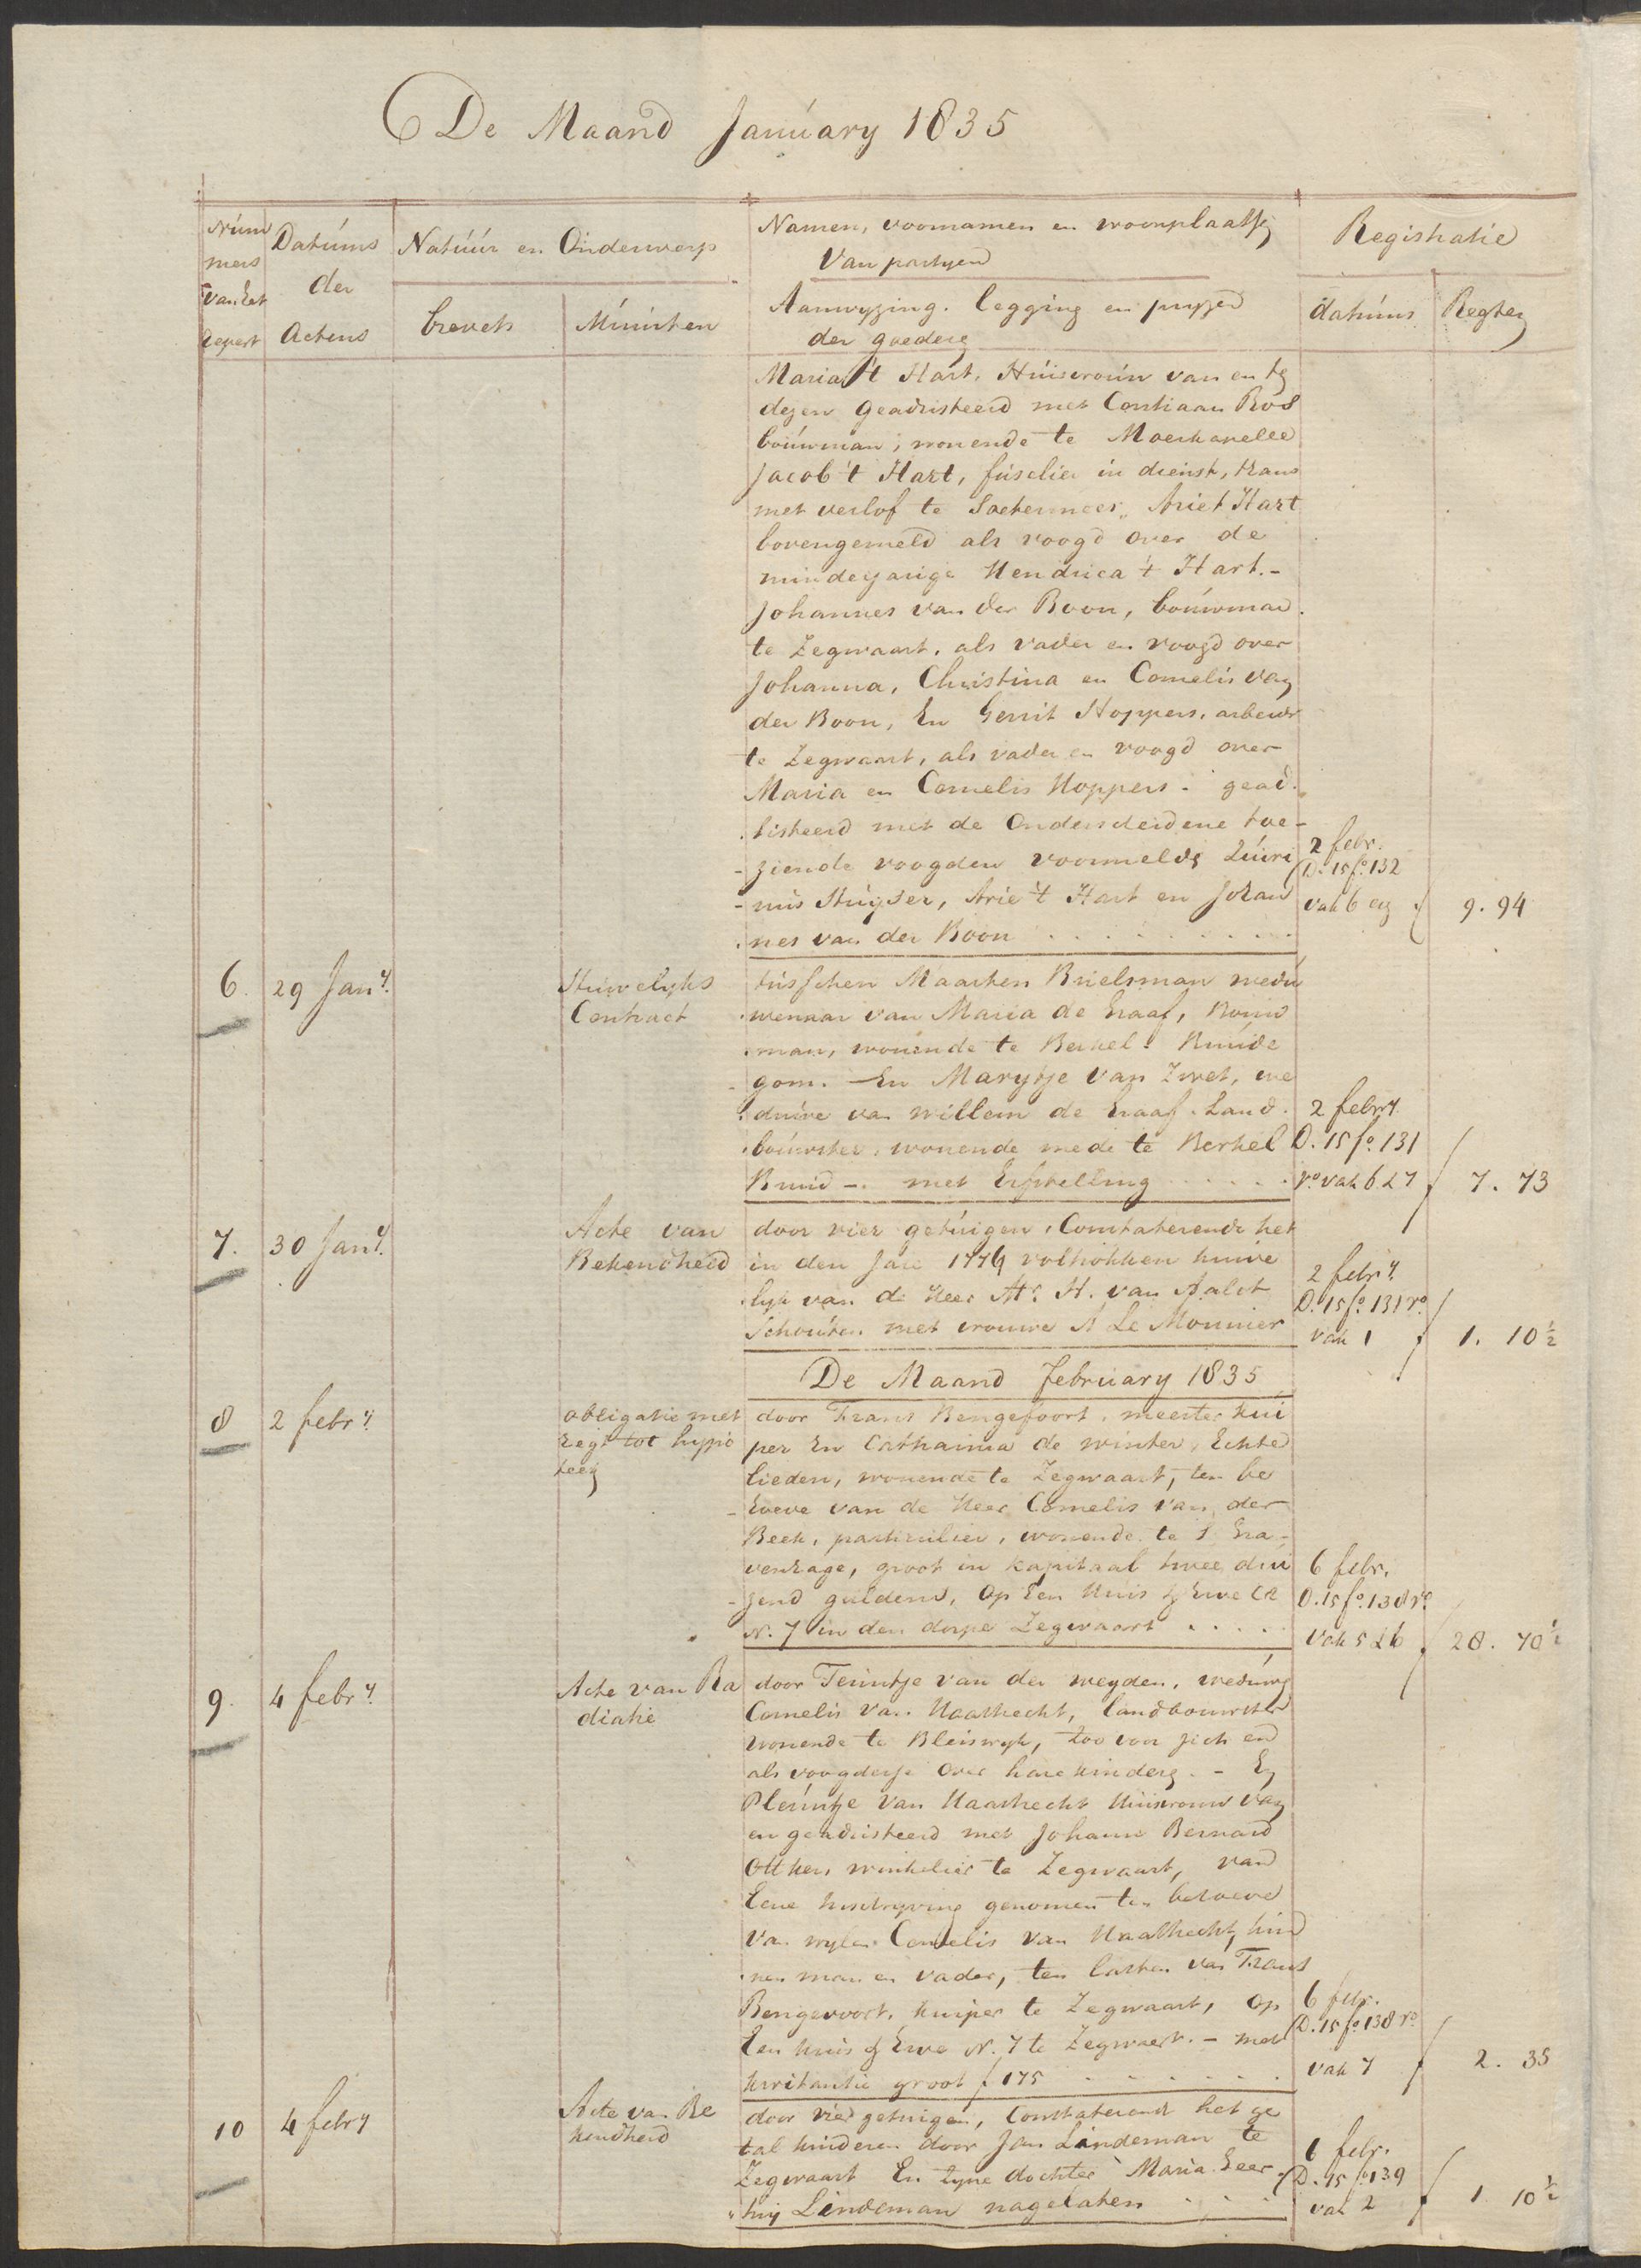 De Maand January 1835
Num
mers
van het
repert
Datums
der
Actens
Natuur en Onderwerp
brevets
Minuten
Namen, voornamen en woonplaatsen
Van partyen
Aanwyzing. legging en pryzen
der goederen
Registratie
datums
Regten
Maria 't Hart, Huisvrouw van en ten
dezen geadsisteerd met Corstiaan Bos
bouwman, wonende te Moerkapelle
Jacob 't Hart, fuselier in dienst, thans
met verlof te Soetermeer, Arie 't Hart
bovengemeld als voogd over de
minderjarige Hendrica 't Hart. -
Johannes van der Boon, bouwman
te Zegwaart, als vader en voogd over
Johanna, Christina en Cornelis van
der Boon, En Gerrit Hoppers, arbeider
te Zegwaart, als vader en voogd over
Maria en Cornelis Hoppers - gead-
sisteerd met de Onderscheidene toe-
ziende voogden voormelds Quiri
nus Kuyser, Arie 't Hart en Johan
nes van der Boon
2 febr.
D. 15 fo. 132
vak 6 en
9. 94
6. 29 Jany.
Huwelyks
Contract
tusschen Maarten Brielsman wedu
wenaar van Maria de Graaf, Bouw
man, wonende te Berkel & Rúúde
gom. En Marytje van Zwet, we
duwe van Willem de Graaf. Land
bouwster, wonende mede te Berkel
Ruud -. met Erfstelling
2 febry.
D. 15 fo. 131
ro vak 6 & 7
7. 73
7. 30 Jany.
Acte van
Bekendheid
door vier getuigen, Constaterende het
in den Jare 1779 voltrokken huwe
lyk van de Heer Mr. H. van Aalst
Schouten met vrouwe A Le Monnier
2 febry.
D. 15 fo. 131 ro
vak 1
1. 10 ½
De Maand February 1835
8 2 febry.
obligatie met
regt tot hypo
teek
door Frans Bengefoort, meester kui
per En Catharina de Winter, Echte
lieden, wonende te Zegwaart, ten be
hoeve van de Heer Cornelis van der
Beek, particulier, wonende te S Gra-
venhage, groot in kapitaal twee dui
zend guldens, Op Een Huis & Erve CA
N. 7 in den dorpe Zegwaart
6 febr.
D. 15 fo. 138 ro
vak 5 & 6
28. 70 ½
9. 4 febry.
Acte van Ra
diatie
door Teuntje van der Weyden, weduwe
Cornelis van Haastrecht, landbouwster
wonende te Bleiswyk, zoo voor zich en
als voogdesse over hare kinderen. - En
Pleuntje van Haastrecht Huisvrouw van
en geadsisteerd met Johann Bernard
Ottkers winkelier te Zegwaart, van
Eene Inschryving genomen ten behoeve
van wylen Cornelis van Haastrecht, hun
nen man en vader, ten lasten van Frans
Bengevoort, kuiper te Zegwaart, Op
Een huis & Erve N. 7 te Zegwaart. - met
kwitantie groot ƒ 175
6 febr.
D. 15 fo. 138 ro
vak 7
2. 35
10 4 febry
Acte van Be
kendheid
door vier getuigen, Constaterende het ge
tal kinderen door Jan Lindeman te
Zegwaart En zyne dochter Maria Geer-
truy Lindeman nagelaten
6 febr.
D. 15 fo. 139
vak 2
1. 10 ½